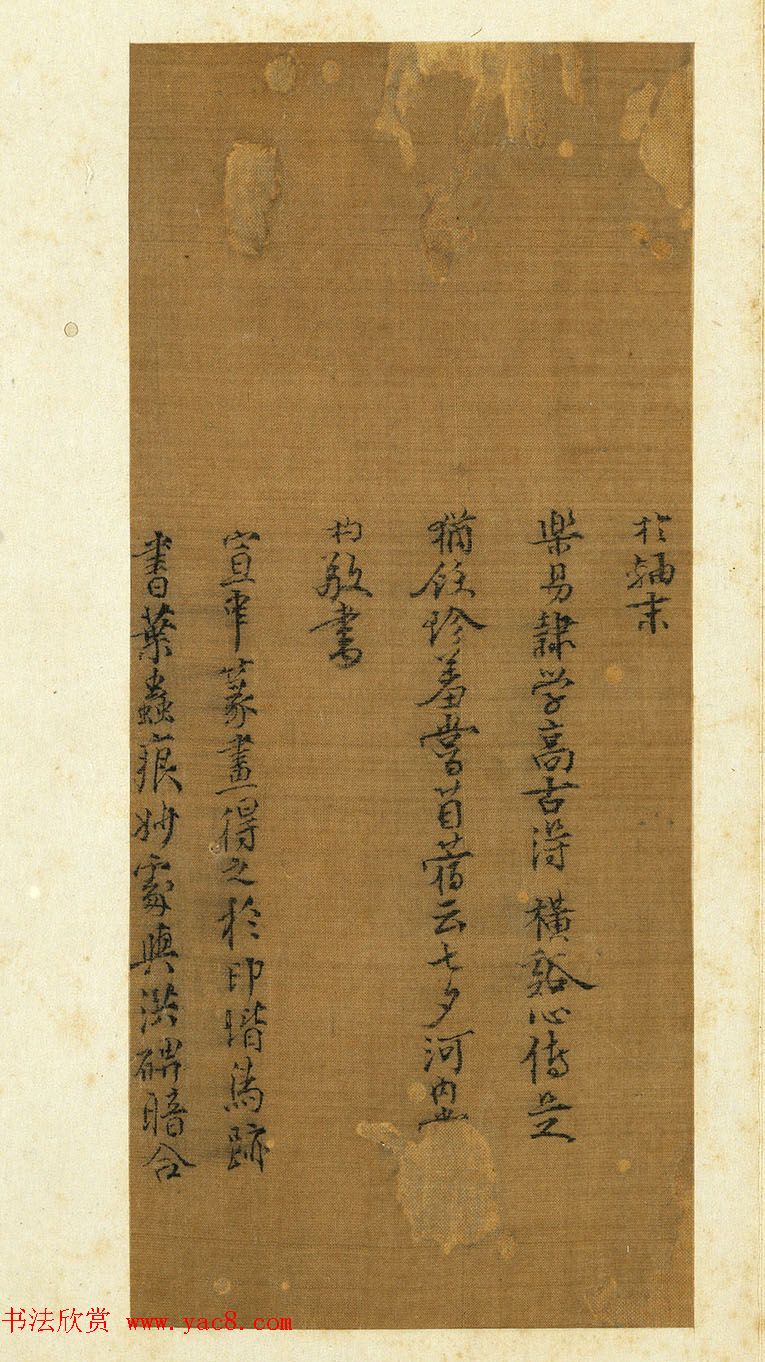 於軸末
樂易隸学高古得 橫谿心傳是
猶飫珍羞嘗苜蓿云七夕河內
构敬書
宣甲篆畫得之於印階為跡
書葉蟲痕妙處與洪碑暗合
书法欣赏 www.yac8.com